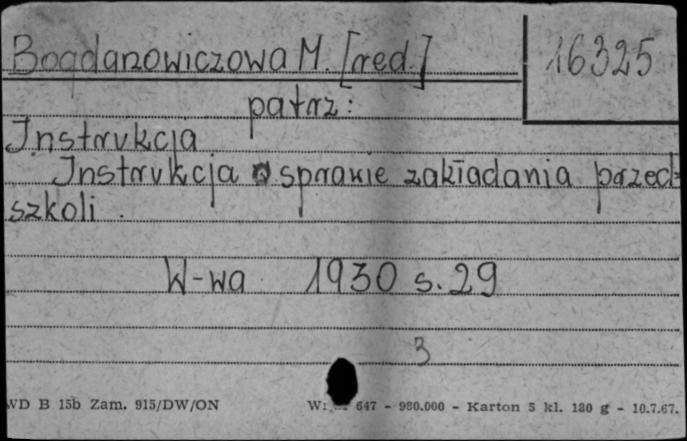 Bogdanowiczowa M. [red.]
16325
patrz:
Instrukcja
Instrukcja o sprawie zakładania przed-
szkoli.
W-wa 1930 s. 29
3
WD B 15b Zam. 915/DW/ON
647 - 980.000 - Karton 5 kl. 180 g - 10.7.67.